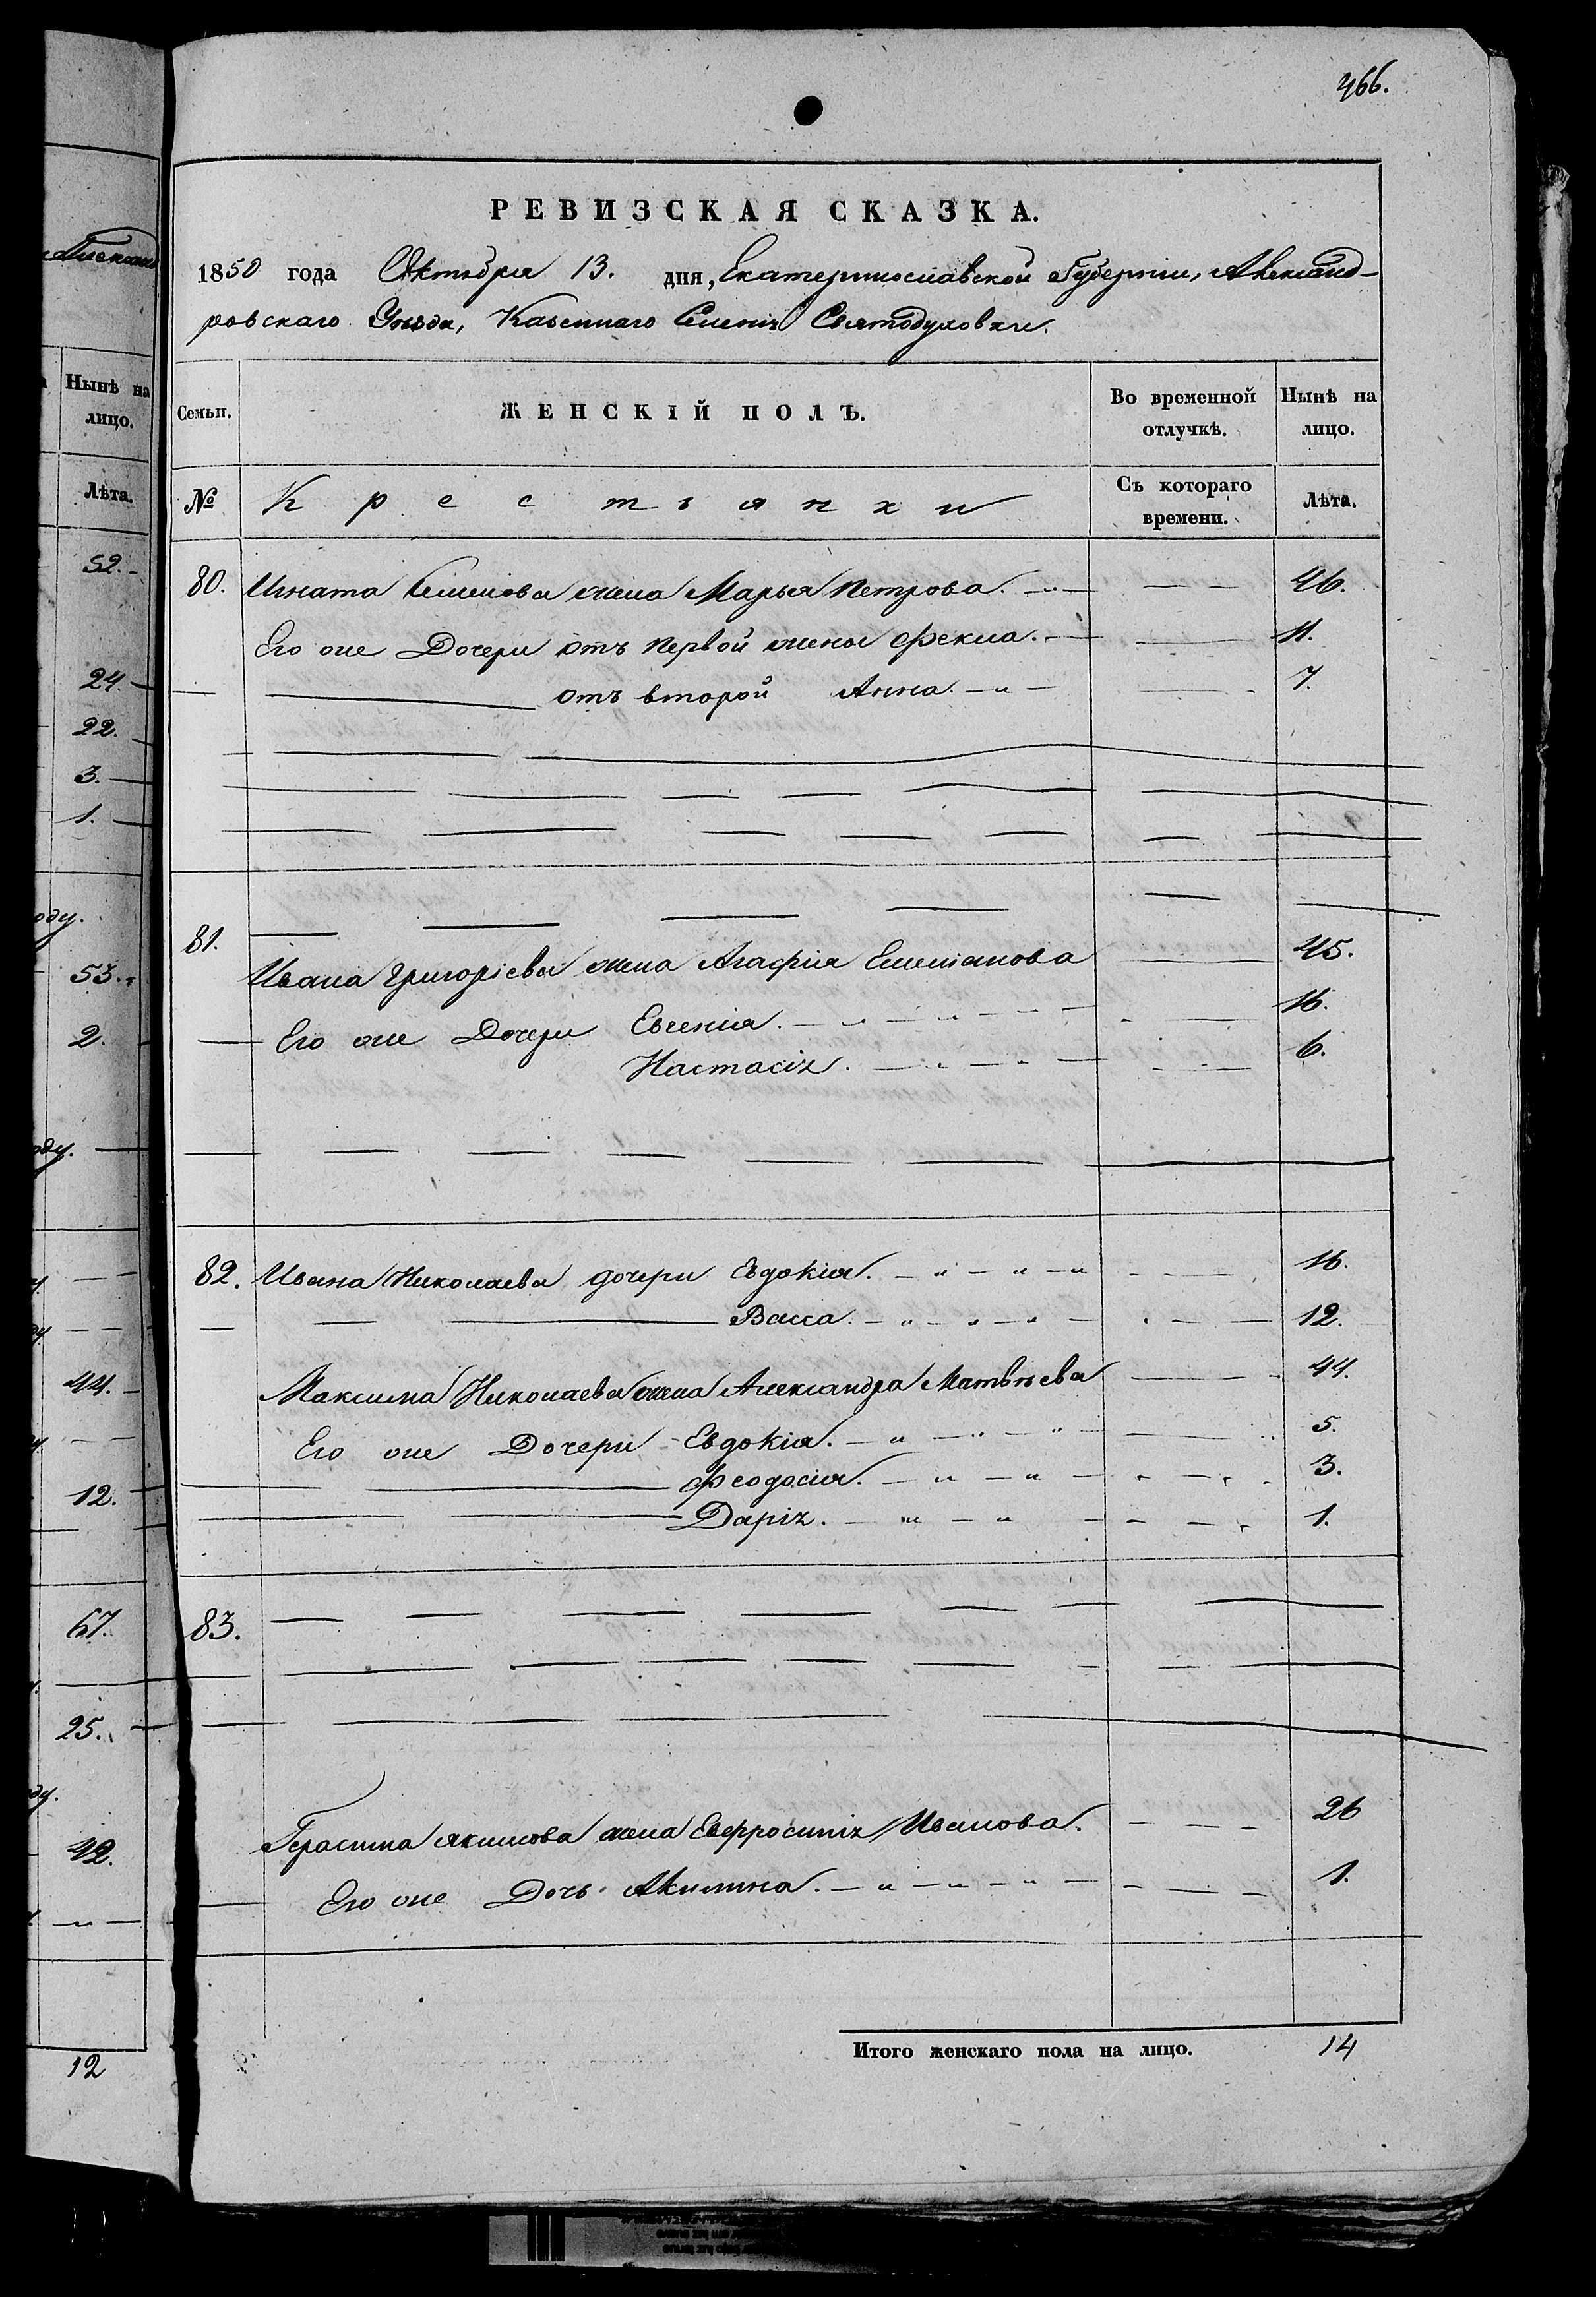 466.
РЕВИЗСКАЯ СКАЗКА.
1850 года Октября 13. дня, Екатеринославской Губерніи, Александ-
ровскаго Уѣзда, Казеннаго Селенія Святодуховки.
Семьи. ЖЕНСКІЙ ПОЛЪ. Во временной отлучкѣ. Нынѣ на лицо.
№ Крестьянки Съ котораго времени. Лѣта.
80. Игната Семенова жена Марья Петрова. 46.
Его же Дочери отъ первой жены Фекла. 11.
отъ второй Анна. 7.
81.
Ивана Григоріева жена Агафія Емельянова 45.
Его же Дочери Евгенія. 16.
Настасія. 6.
82. Ивана Николаева дочери Евдокія. 16.
Васса. 12.
Максима Николаева жена Александра Матвѣева 44.
Его же Дочери Евдокія. 5.
Феодосія. 3.
Дарія. 1.
83.
Герасима Якимова жена Евфросинія Иванова. 26
Его же Дочь Акилина. 1.
Итого женскаго пола на лицо. 14
Нынѣ на
лицо.
Лѣта.
52.
24.
22.
3.
1.
оду.
53.
2.
оду.
44.
12.
67.
25.
42.
12